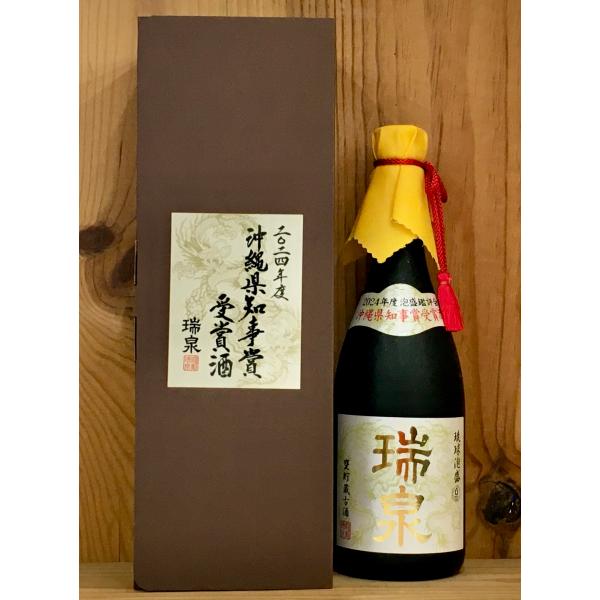 二〇二四年度
沖縄県知事賞
受賞酒
瑞泉
2024年度泡盛鑑評会
沖縄県知事賞受賞
琉球泡盛
瑞泉
甕貯蔵古酒